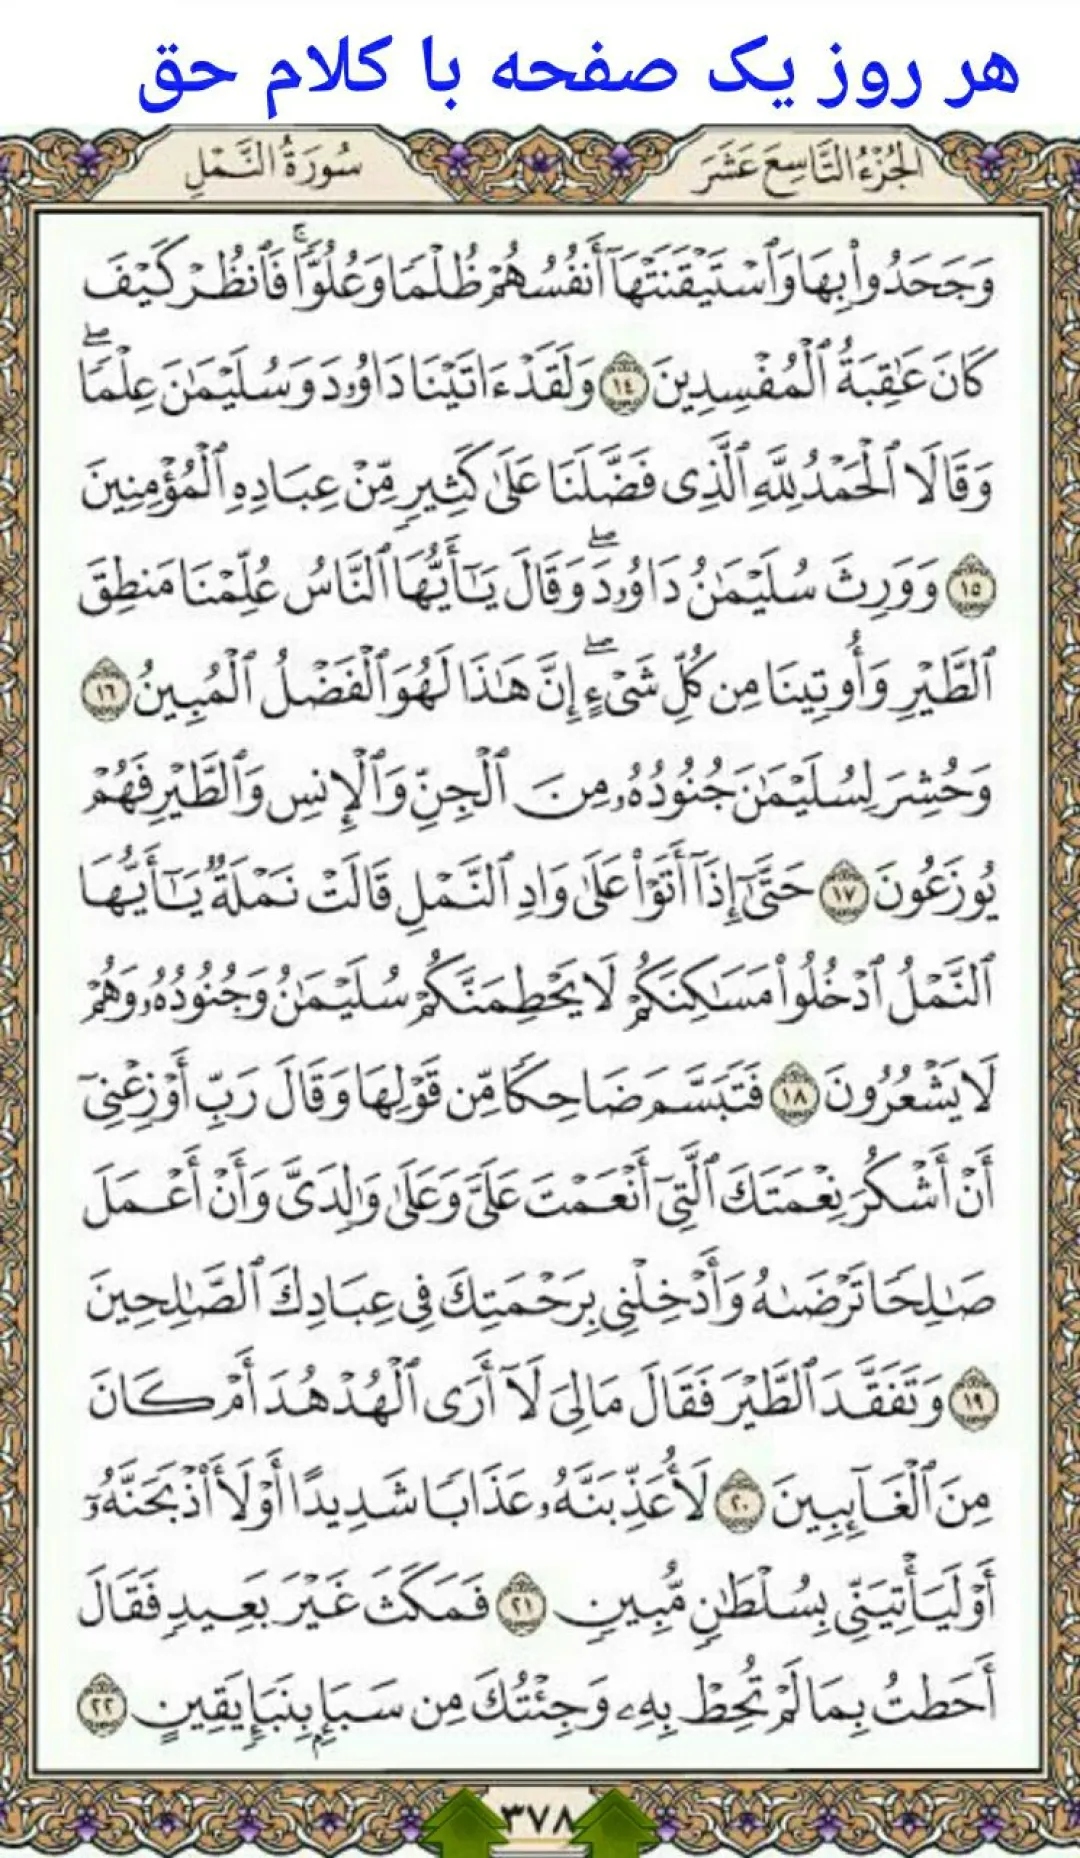 هر روز یک صفحه با کلام حق
الجُزْءُ التَّاسِعَ عَشَرَ
سُورَةُ النَّمْلِ
وَجَحَدُوا۟ بِهَا وَٱسْتَيْقَنَتْهَآ أَنفُسُهُمْ ظُلْمًا وَعُلُوًّا ۚ فَٱنظُرْ كَيْفَ
كَانَ عَـٰقِبَةُ ٱلْمُفْسِدِينَ ١٤ وَلَقَدْ ءَاتَيْنَا دَاوُۥدَ وَسُلَيْمَـٰنَ عِلْمًا ۖ
وَقَالَا ٱلْحَمْدُ لِلَّهِ ٱلَّذِى فَضَّلَنَا عَلَىٰ كَثِيرٍ مِّنْ عِبَادِهِ ٱلْمُؤْمِنِينَ
١٥ وَوَرِثَ سُلَيْمَـٰنُ دَاوُۥدَ ۖ وَقَالَ يَـٰٓأَيُّهَا ٱلنَّاسُ عُلِّمْنَا مَنطِقَ
ٱلطَّيْرِ وَأُوتِينَا مِن كُلِّ شَىْءٍ ۖ إِنَّ هَـٰذَا لَهُوَ ٱلْفَضْلُ ٱلْمُبِينُ ١٦
وَحُشِرَ لِسُلَيْمَـٰنَ جُنُودُهُۥ مِنَ ٱلْجِنِّ وَٱلْإِنسِ وَٱلطَّيْرِ فَهُمْ
يُوزَعُونَ ١٧ حَتَّىٰٓ إِذَآ أَتَوْا۟ عَلَىٰ وَادِ ٱلنَّمْلِ قَالَتْ نَمْلَةٌ يَـٰٓأَيُّهَا
ٱلنَّمْلُ ٱدْخُلُوا۟ مَسَـٰكِنَكُمْ لَا يَحْطِمَنَّكُمْ سُلَيْمَـٰنُ وَجُنُودُهُۥ وَهُمْ
لَا يَشْعُرُونَ ١٨ فَتَبَسَّمَ ضَاحِكًا مِّن قَوْلِهَا وَقَالَ رَبِّ أَوْزِعْنِىٓ
أَنْ أَشْكُرَ نِعْمَتَكَ ٱلَّتِىٓ أَنْعَمْتَ عَلَىَّ وَعَلَىٰ وَٰلِدَىَّ وَأَنْ أَعْمَلَ
صَـٰلِحًا تَرْضَىٰهُ وَأَدْخِلْنِى بِرَحْمَتِكَ فِى عِبَادِكَ ٱلصَّـٰلِحِينَ
١٩ وَتَفَقَّدَ ٱلطَّيْرَ فَقَالَ مَا لِىَ لَآ أَرَى ٱلْهُدْهُدَ أَمْ كَانَ
مِنَ ٱلْغَآئِبِينَ ٢٠ لَأُعَذِّبَنَّهُۥ عَذَابًا شَدِيدًا أَوْ لَأَا۟ذْبَحَنَّهُۥٓ
أَوْ لَيَأْتِيَنِّى بِسُلْطَـٰنٍ مُّبِينٍ ٢١ فَمَكَثَ غَيْرَ بَعِيدٍ فَقَالَ
أَحَطتُ بِمَا لَمْ تُحِطْ بِهِۦ وَجِئْتُكَ مِن سَبَإٍۭ بِنَبَإٍ يَقِينٍ ٢٢
٣٧٨